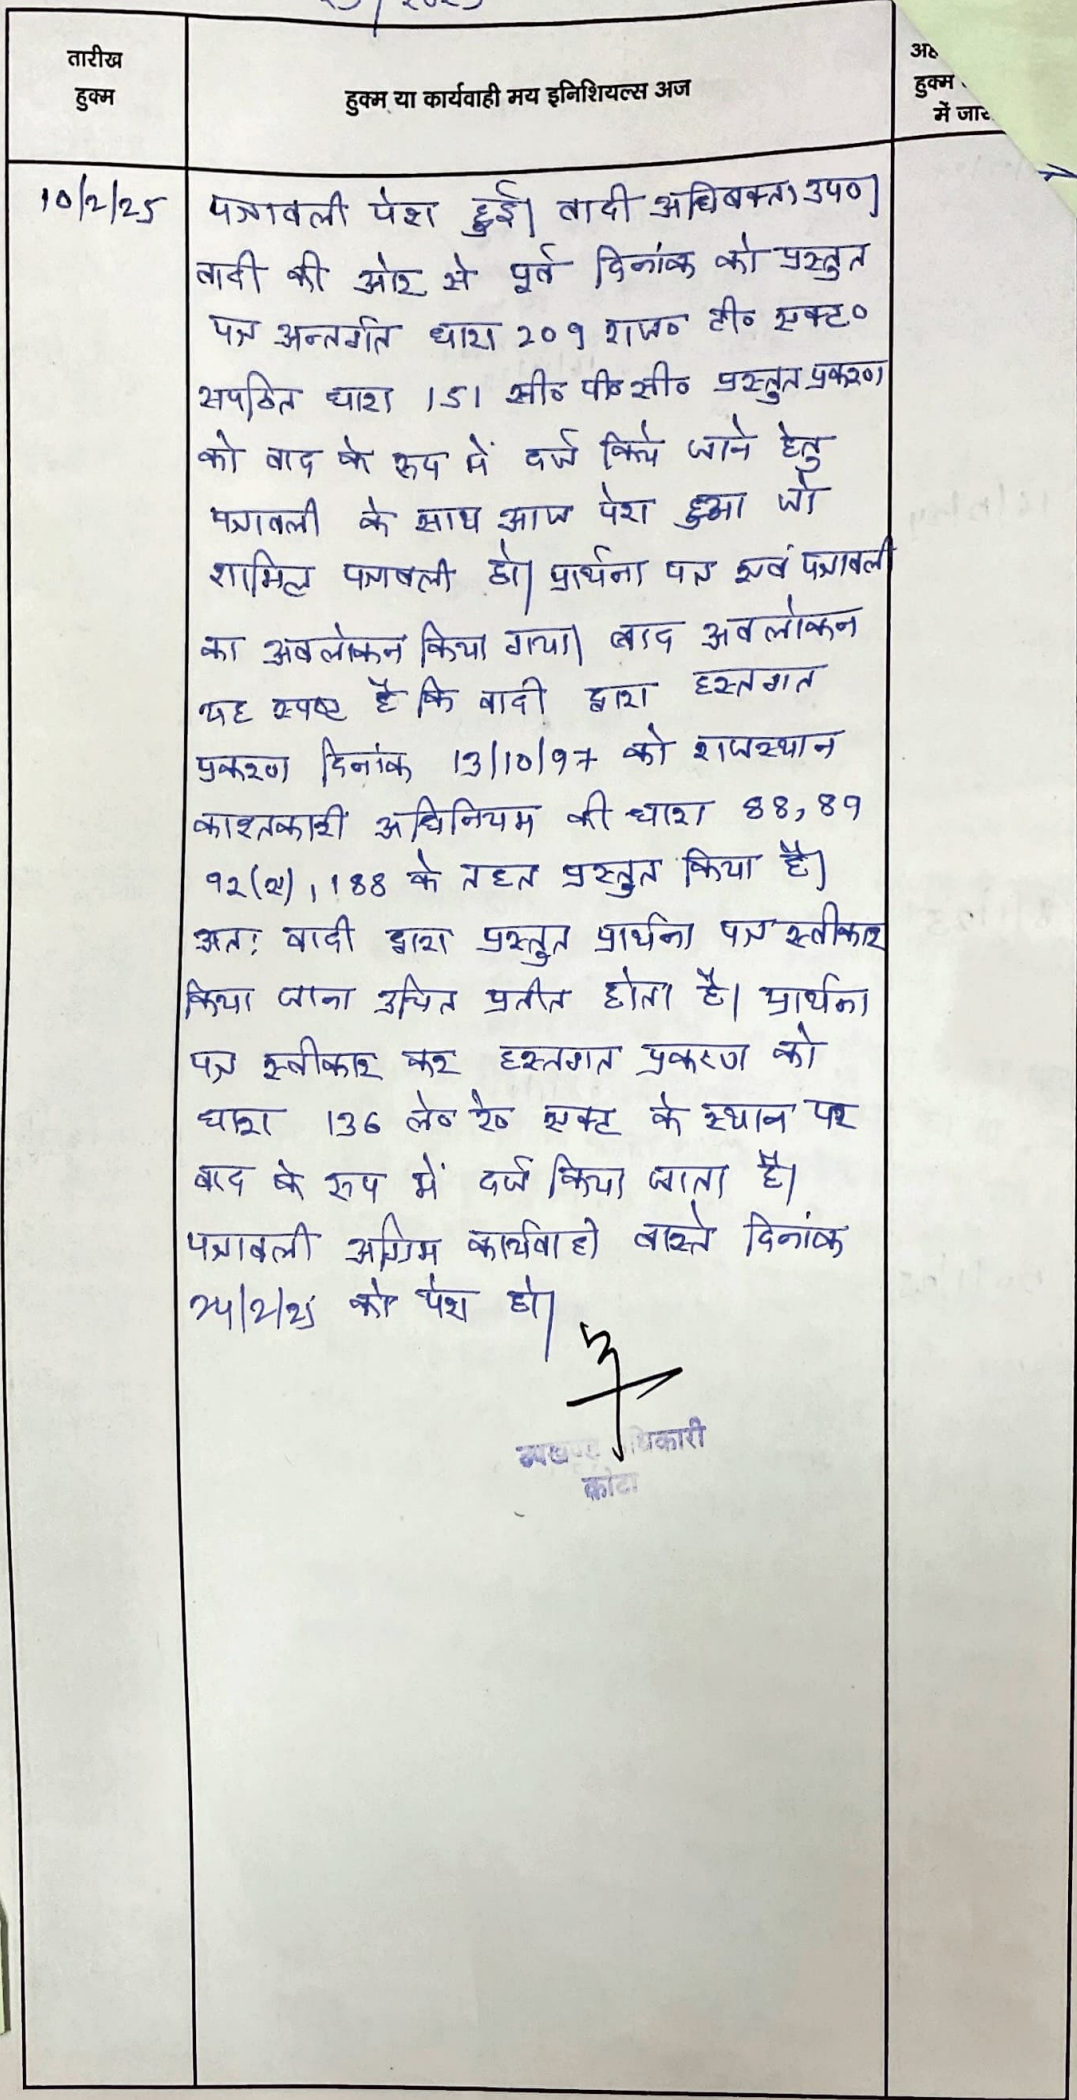 तारीख
हुक्म
हुक्म या कार्यवाही मय इनिशियल्स अज
हुक्म
में जार
10/2/25
पत्रावली पेश हुई। वादी अधिवक्ता उप०।
वादी की ओर से पूर्व दिनांक को प्रस्तुत
पत्र अन्तर्गत धारा 209 राज० टी० एक्ट०
सपठित धारा 151 सी० पी० सी० प्रस्तुत प्रकरण
को वाद के रूप में दर्ज किये जाने हेतु
पत्रावली के साथ आज पेश हुआ जो
शामिल पत्रावली हो। प्रार्थना पत्र एवं पत्रावली
का अवलोकन किया गया। बाद अवलोकन
यह स्पष्ट है कि वादी द्वारा हस्तगत
प्रकरण दिनांक 13/10/97 को राजस्थान
काश्तकारी अधिनियम की धारा 88, 89
92(ए), 188 के तहत प्रस्तुत किया है।
अतः वादी द्वारा प्रस्तुत प्रार्थना पत्र स्वीकार
किया जाना उचित प्रतीत होता है। प्रार्थना
पत्र स्वीकार कर हस्तगत प्रकरण को
धारा 136 ले० रे० एक्ट के स्थान पर
वाद के रूप में दर्ज किया जाता है।
पत्रावली अग्रिम कार्यवाही वास्ते दिनांक
24/2/25 को पेश हो।
उपखण्ड अधिकारी
कोटा